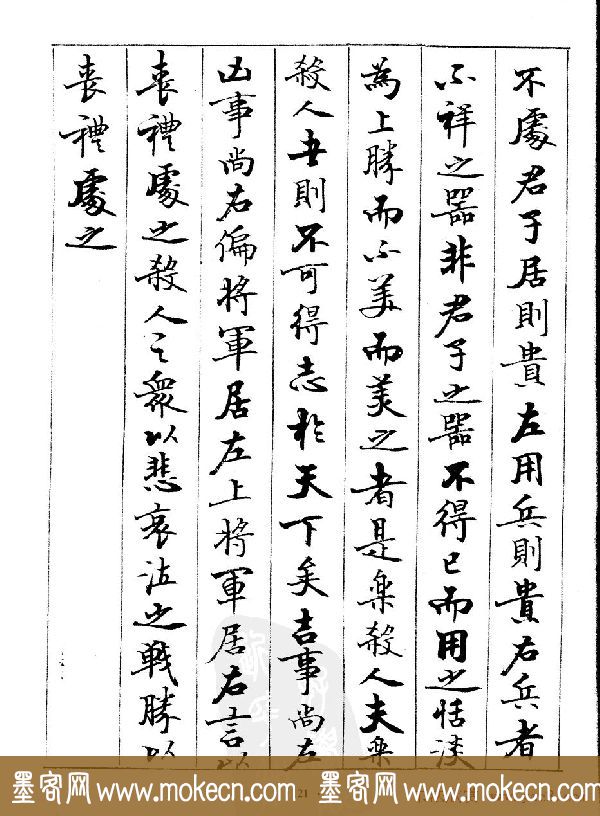 不處君子居則貴左用兵則貴右兵者
不祥之器非君子之器不得已而用之恬淡
為上勝而不美而美之者是樂殺人夫樂
殺人者則不可得志於天下矣吉事尚左
凶事尚右偏將軍居左上將軍居右言以
喪禮處之殺人之衆以悲哀泣之戰勝以
喪禮處之
墨客网 www.mokecn.com 21 墨客网 www.mokecn.com